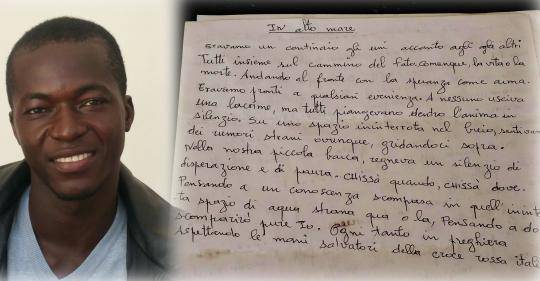 In alto mare
eravamo un centinaio gli uni accanto agli gli altri
Tutti insieme sul cammino del fato comunque, la vita o la
morte. Andando al fronte con la speranza come arma.
Eravamo pronti a qualsiasi evenienza. A nessuno usciva
una lacrima, ma tutti piangevano dentro l'anima in
silenzio. Su uno spazio ininterrota nel buio, sentivam
dei rumori strani ovunque, gridandoci sopra.
Nella nostra piccola barca, regnava un silenzio di
disperazione e di paura. CHISSÀ quando, CHISSÀ dove.
Pensando a un conoscenza scomparsa in quell'inint
ta spazio di aqua strana qua o la, Pensando a do
scomparirò pure Io. Ogni tanto in preghiera
Aspettando le mani salvatori della croce rossa itali